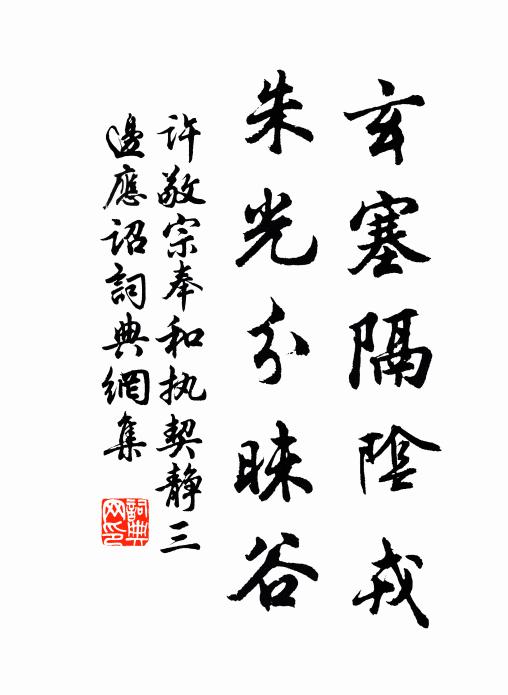 玄塞隔陰戎
朱光分昧谷
许敬宗奉和执契静三
邊應詔詞典網集
詞典
网印